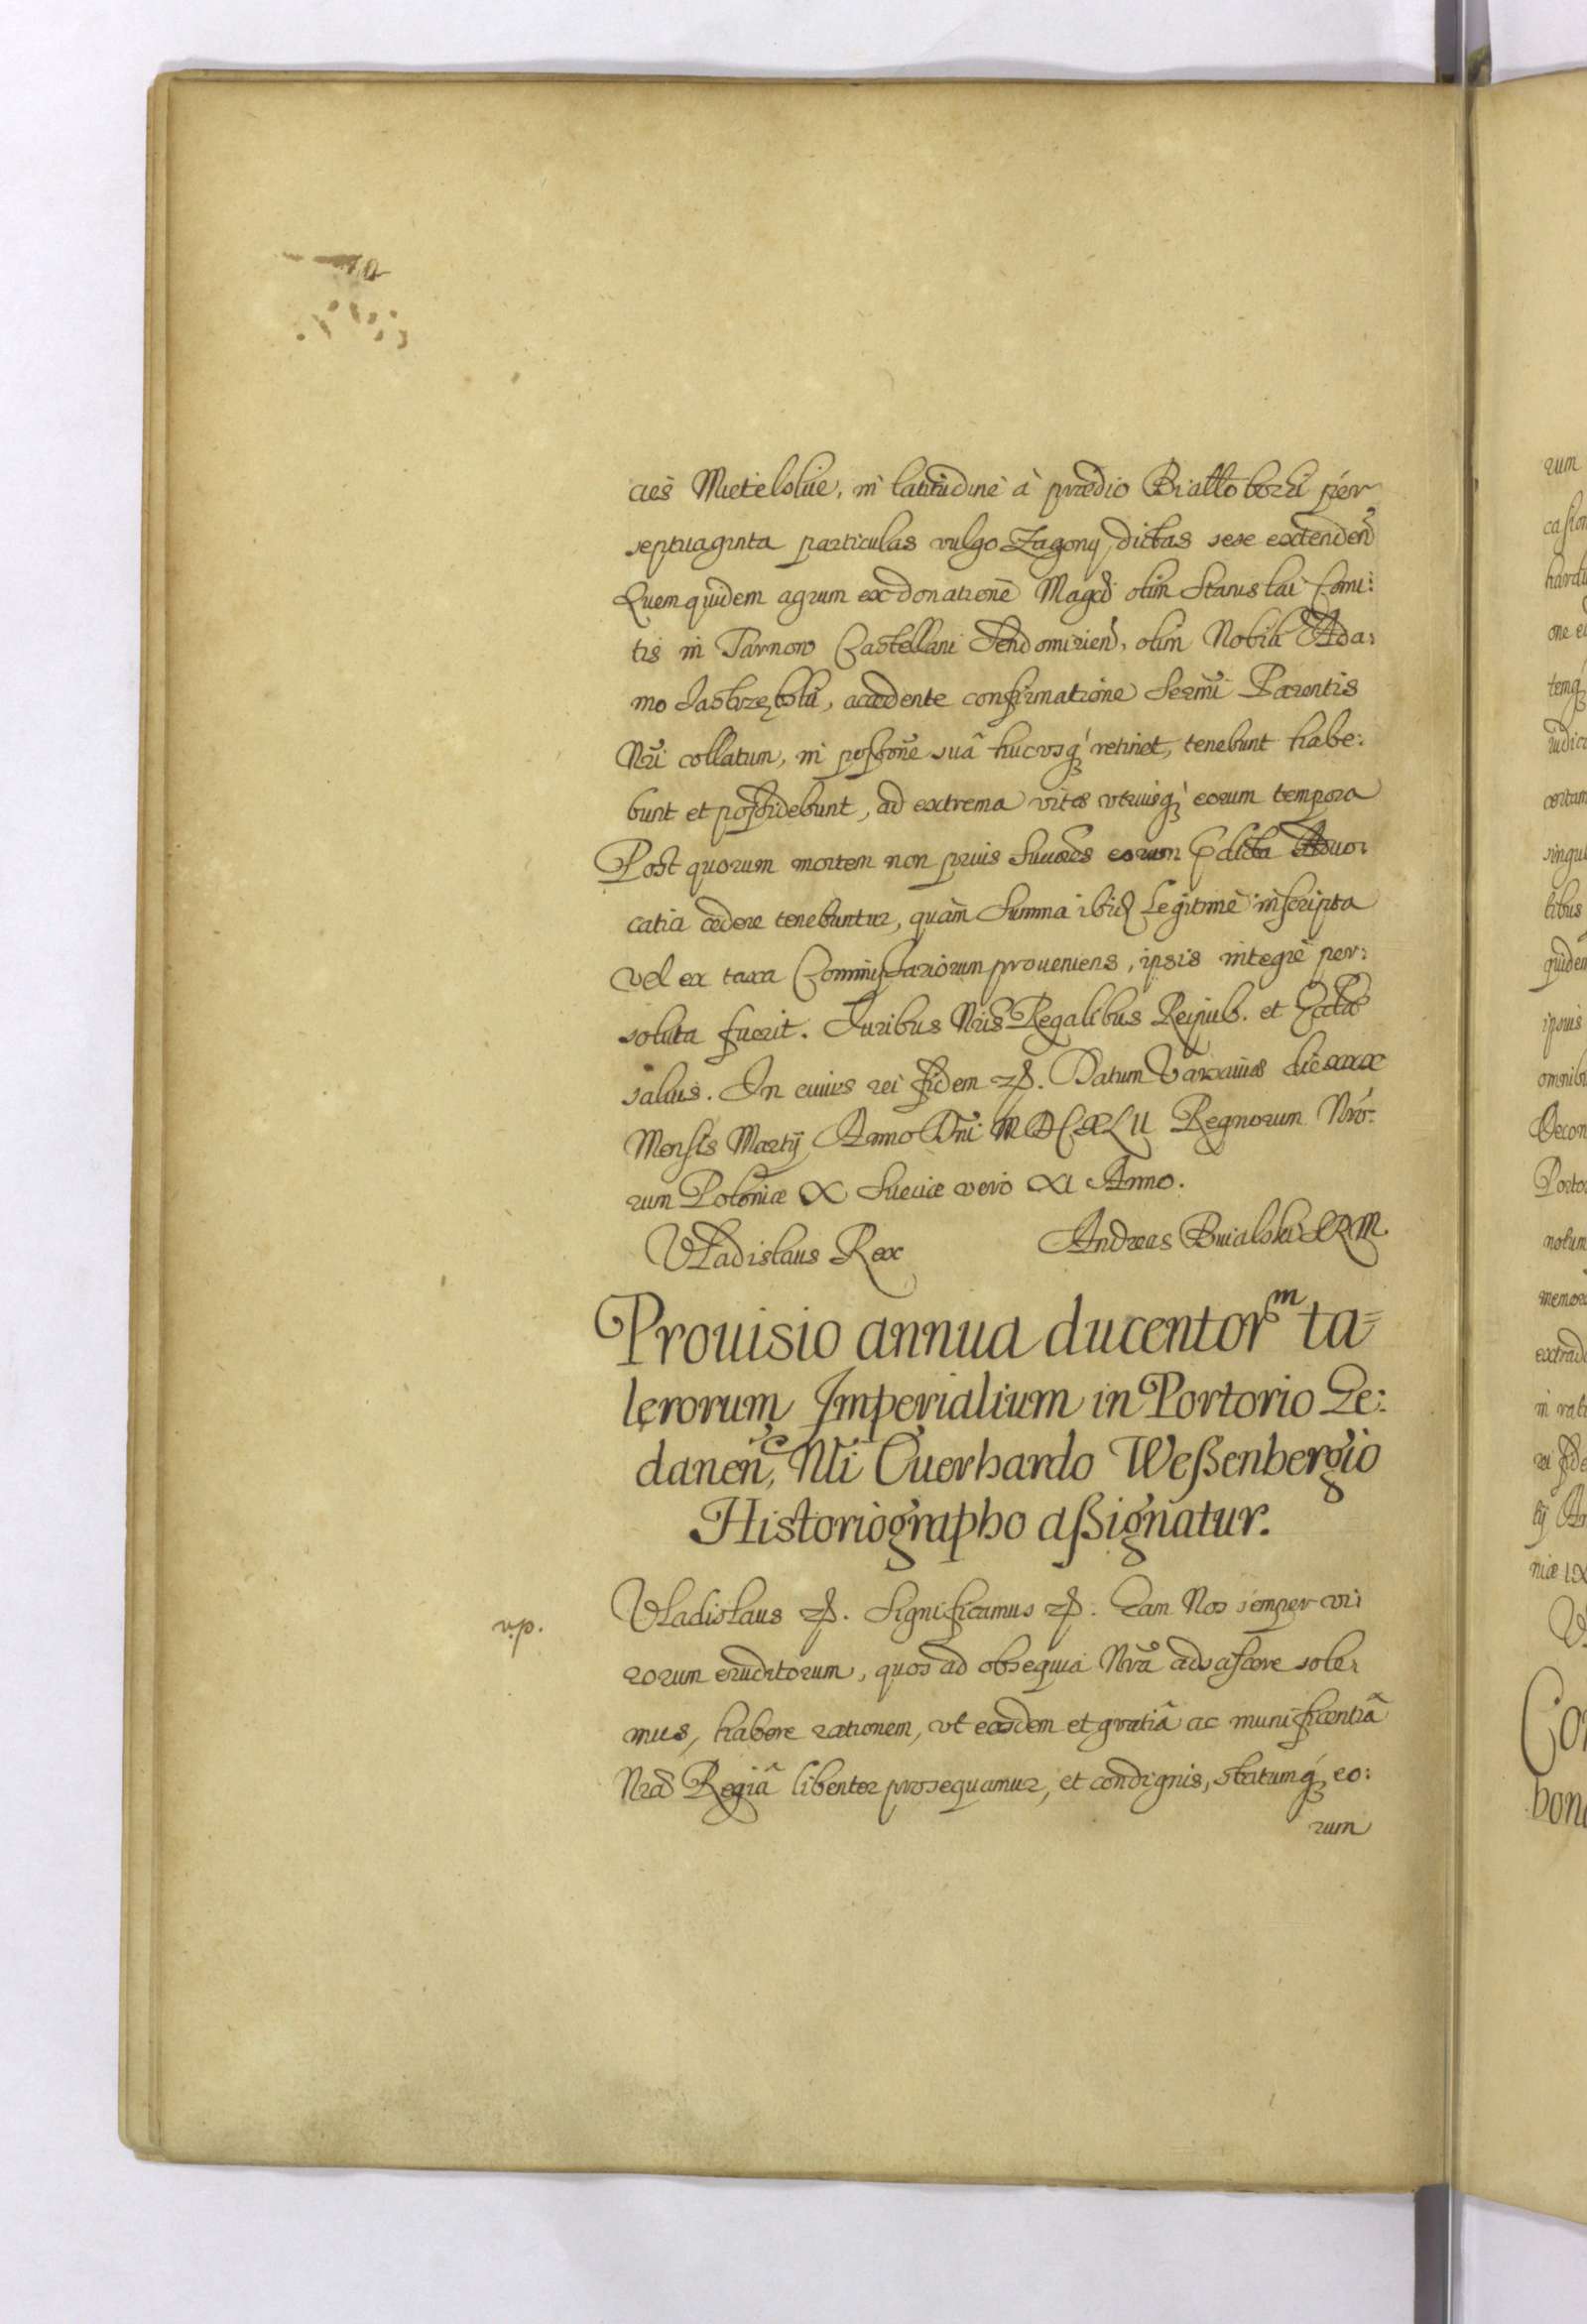 cies Mietelskie, in latitudine à prædio Białłoborki per
septuaginta particulas vulgo Zagony dictas sese extenden̄
Quem quidem agrum ex donatione Magcī olim Stanislai Comi:
tis in Tarnow Castellani Sendomirien̄, olim Nobili Ada:
mo Jastrzębski, accedente confirmatione Sermi Parentis
Nri collatum, in possone suâ hucusq́ retinet, tenebunt habe:
bunt et possidebunt, ad extrema vitæ vtriusq́ eorum tempora
Post quorum mortem non prius Succres eorum pdicta Aduo:
catia cedere tenebuntur, quàm Summa ibid Legitime inscripta
vel ex taxa Commissariorum proueniens, ipsis integrè per:
soluta fuerit. Juribus Nris Regalibus Reipub. et Eccłæ
saluis. In cuius rei fidem etc. Datum Varsauiæ die xxx
Mensis Martij Anno Dni MDCXLII Regnorum Nro:
rum Poloniæ X Sueciæ vero XI Anno.
Vladislaus Rex Andreas Buialski SRM.
Prouisio annua ducentorm ta=
lerorum Imperialium in Portorio Ge:
danen, Nli Euerhardo Weßenbergio
Historiographo aßignatur.
v.p. Vladislaus etc. Significamus etc. Eam Nos semper vi:
rorum eruditorum, quos ad obsequia Nra adsciscere sole:
mus, habere rationem, vt eosdem et gratiâ ac munificentiâ
Nrâ Regiâ libenter prosequamur, et condignis, statumq́ eo:
rum